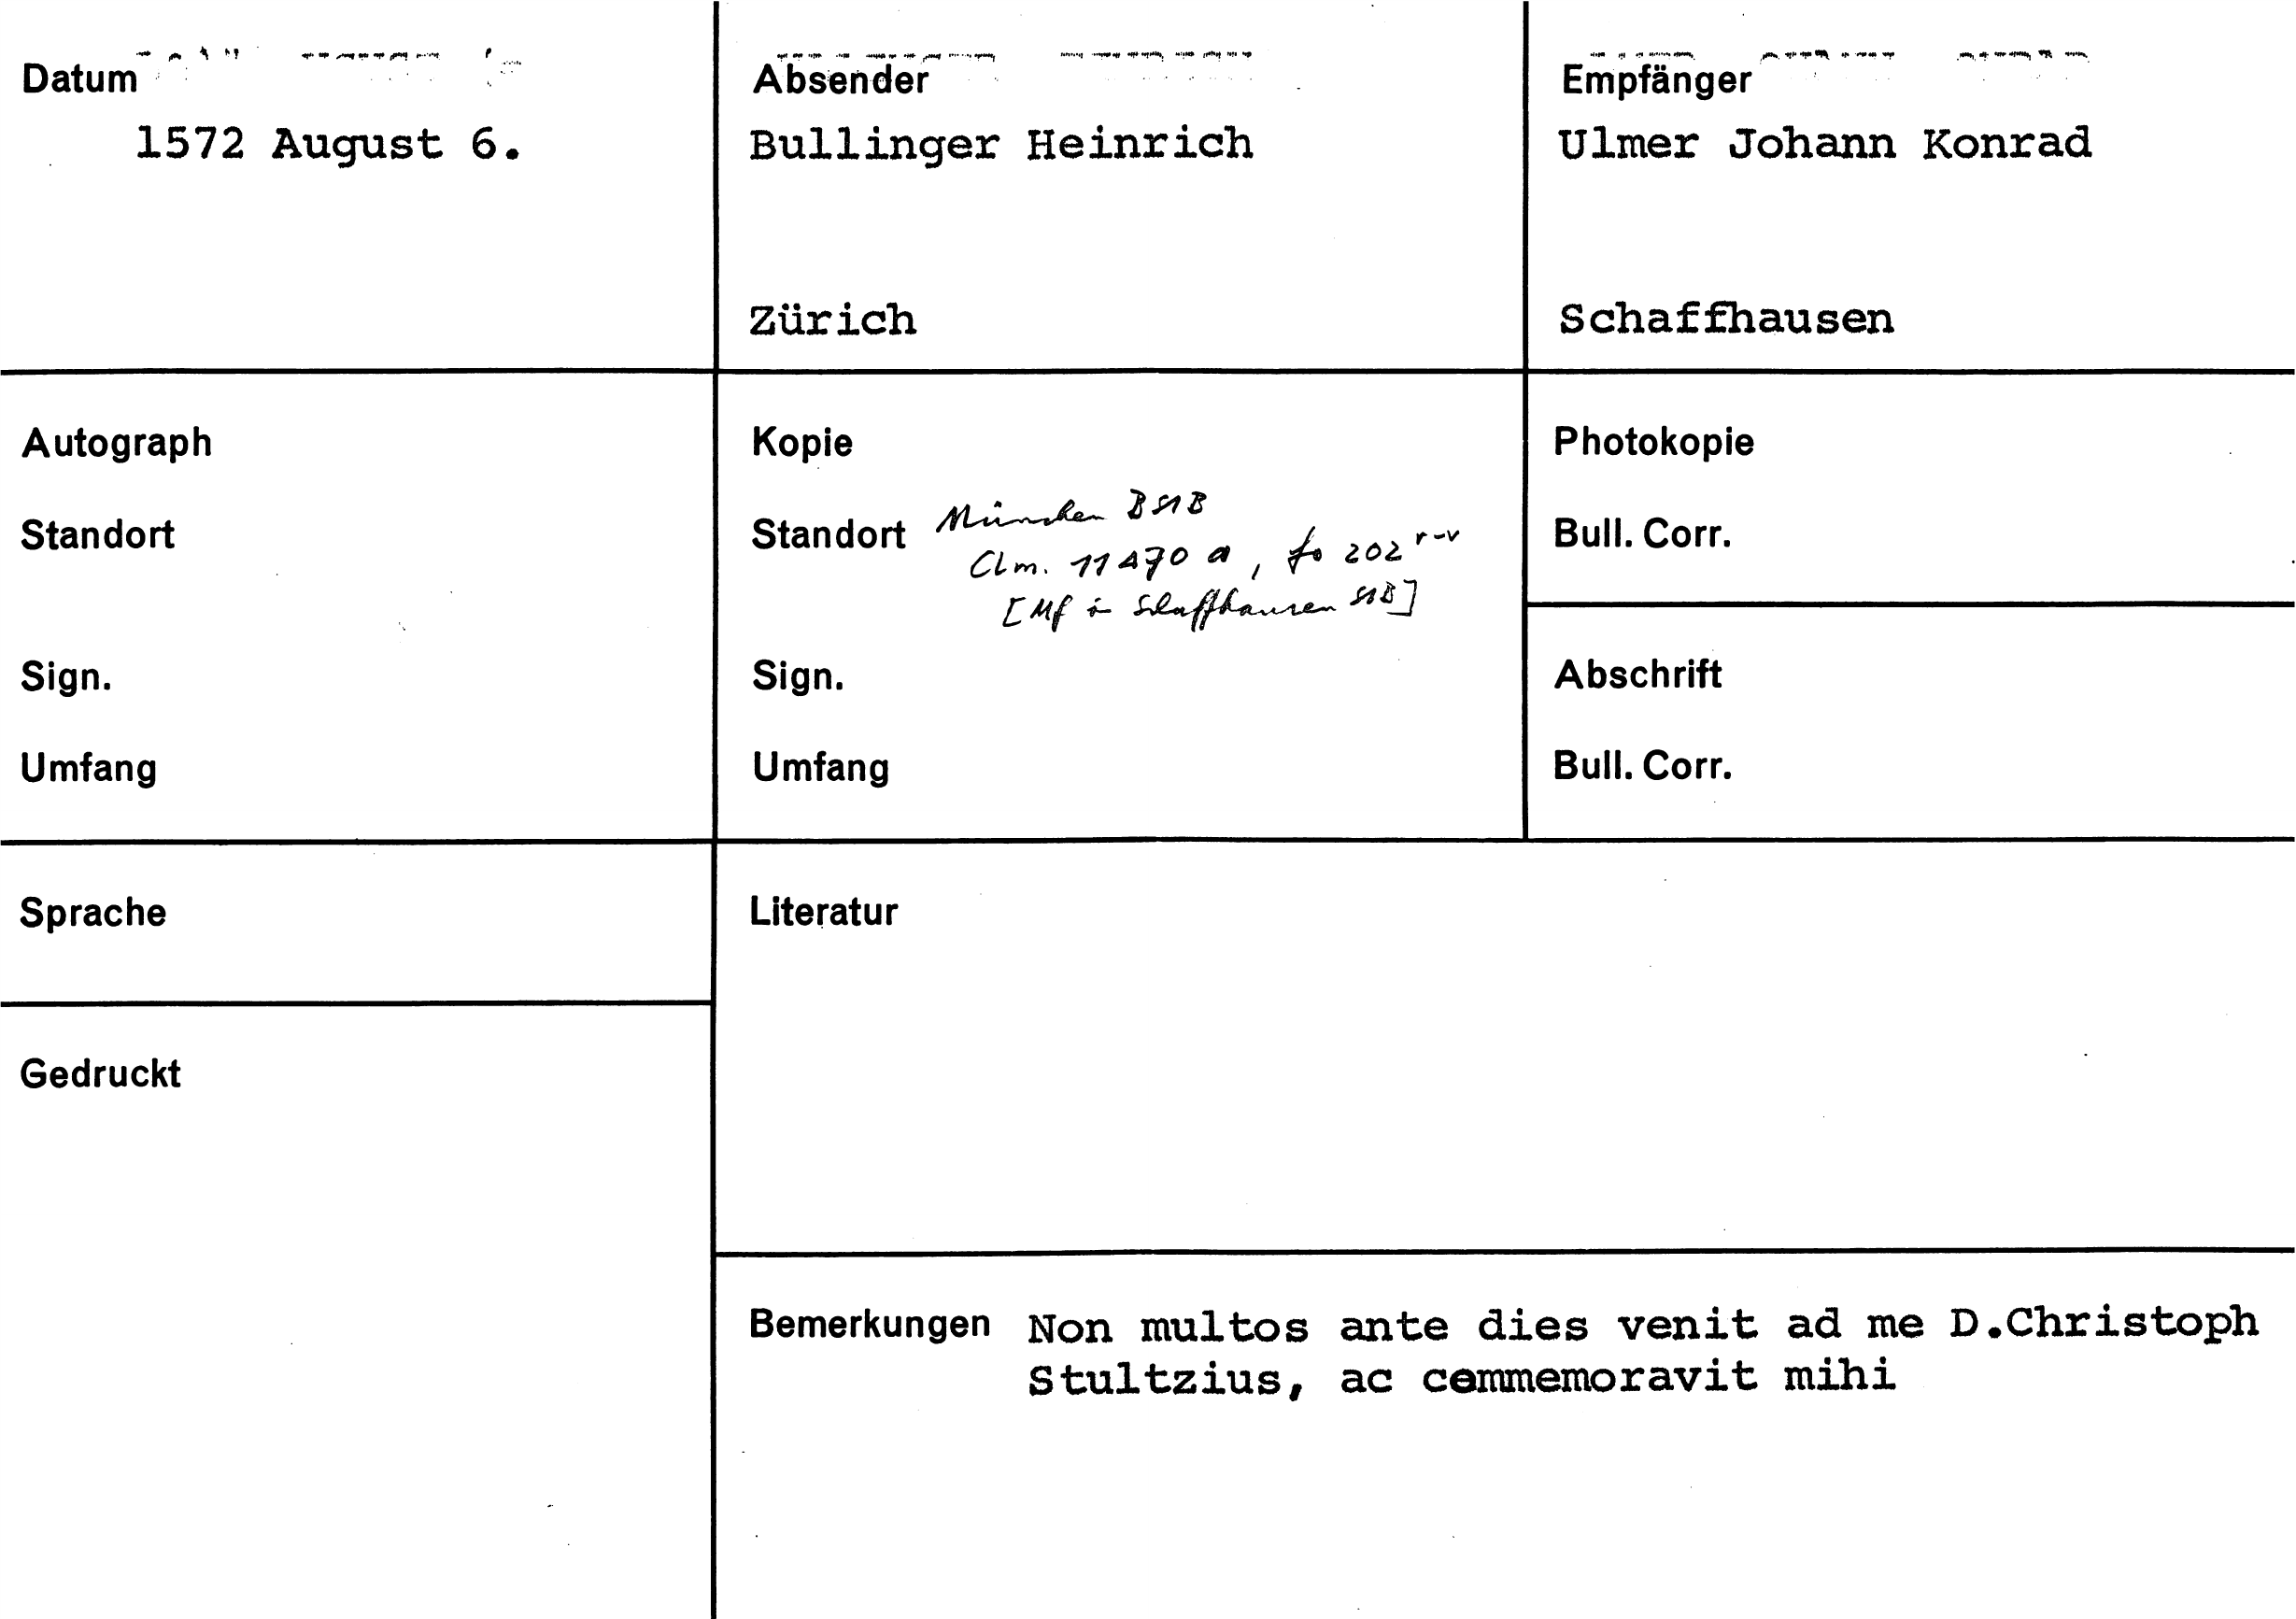 Datum
1572 August 6.
Absender
Bullinger Heinrich
Zürich
Empfänger
Ulmer Johann Konrad
Schaffhausen
Autograph
Standort
Sign.
Umfang
Kopie
Standort München BStB
Clm. 11470 a, fo 202 r-v
[Mf in Schaffhausen StB]
Sign.
Umfang
Photokopie
Bull. Corr.
Abschrift
Bull. Corr.
Sprache
Literatur
Gedruckt
Bemerkungen Non multos ante dies venit ad me D.Christoph
Stultzius, ac commemoravit mihi